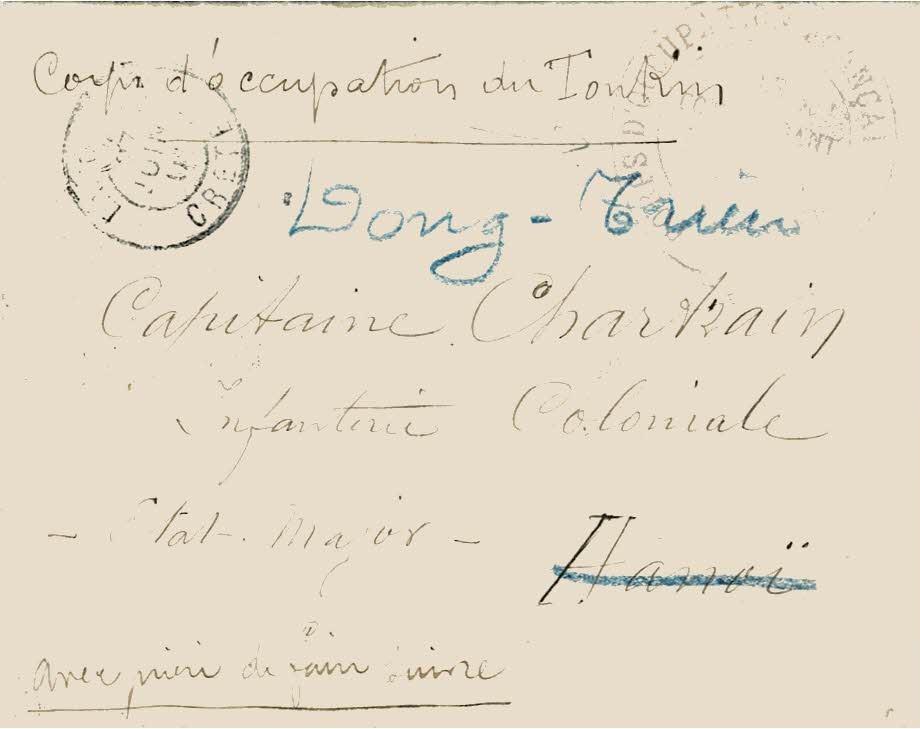 Corps d'occupation du Tonkin
CRETE
Dong-Trieu
Capitaine Chartrain
Infanterie Coloniale
- Etat-Major -
Hanoï
avec prière de faire suivre